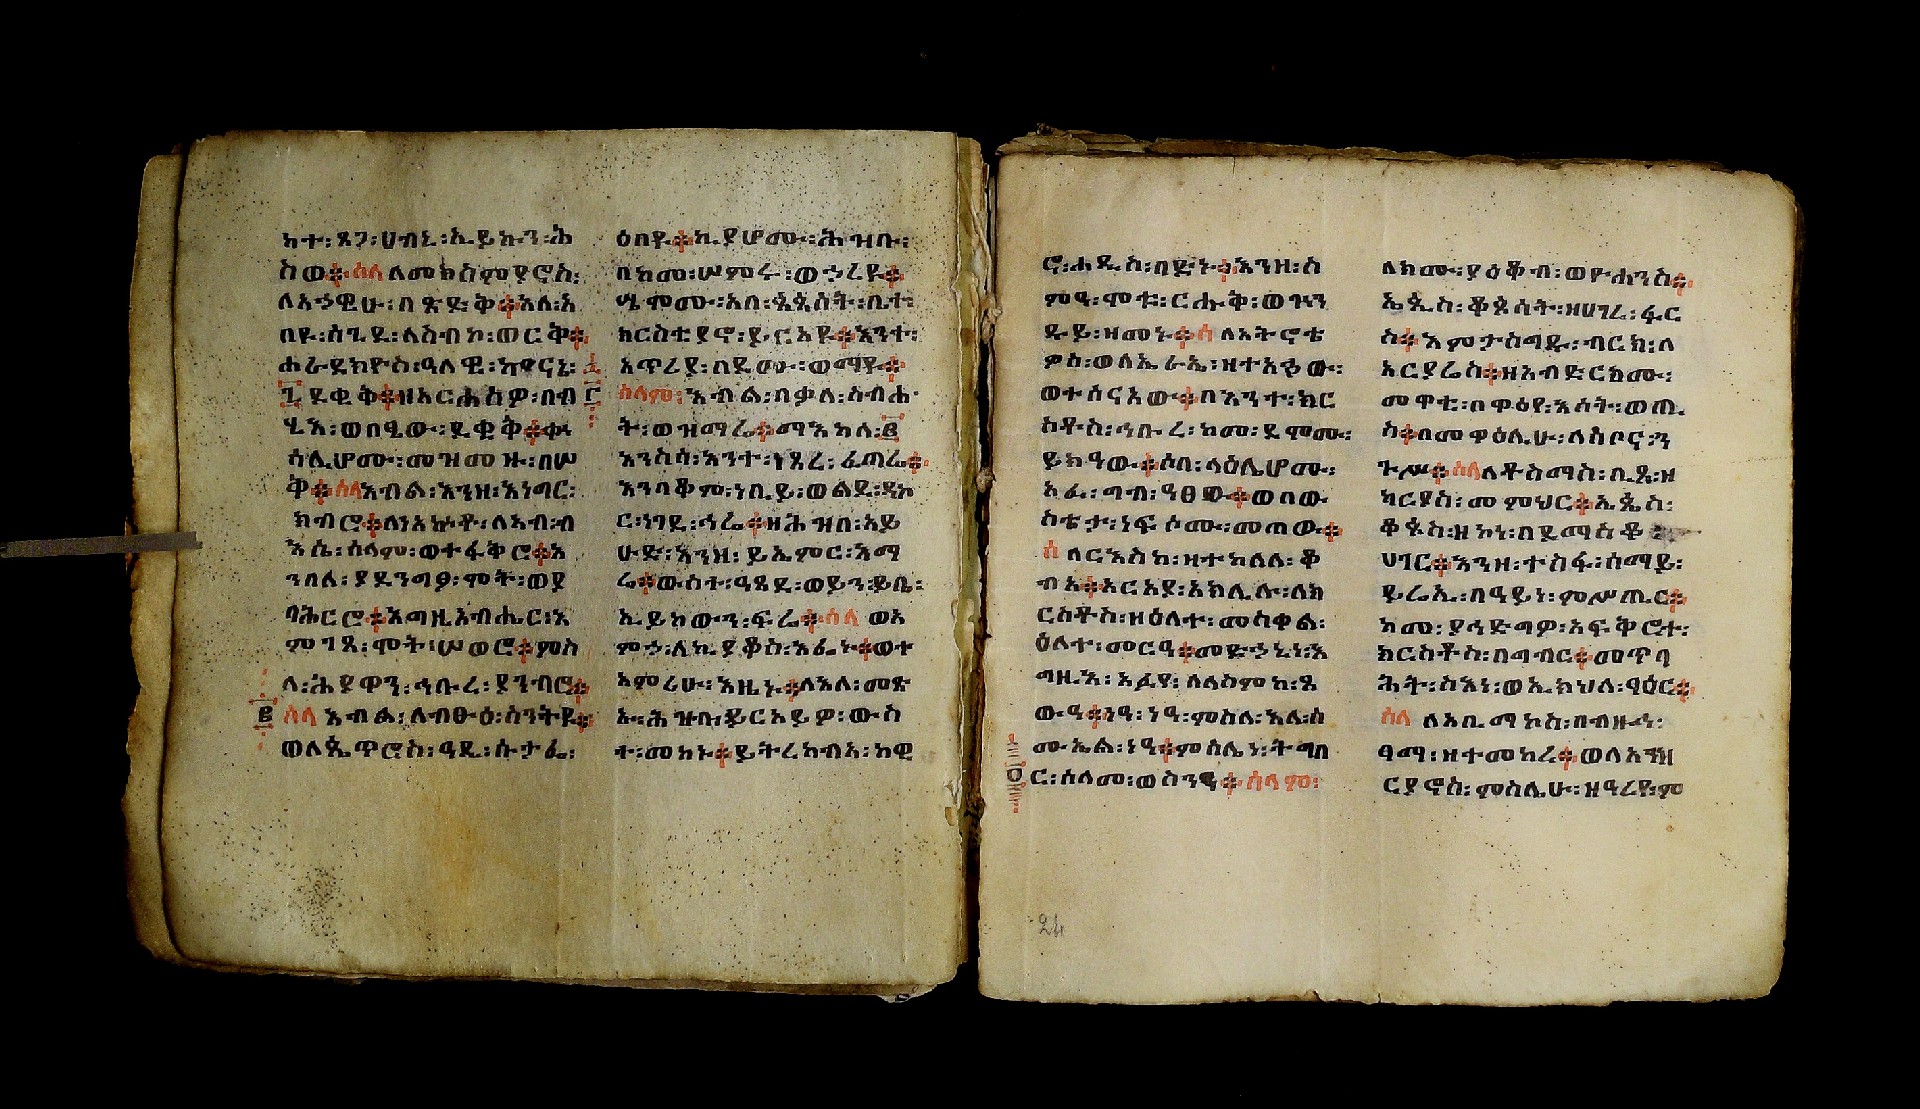 ከተ፡ጸጋ፡ሀብኒ፡ኢይኩን፡ሕ
ስወ፨ሰላ ለመክስምያኖስ፡
ለአኃዊሁ፡በጽድቅ፨እለ፡አ
በዩ፡ሰጊደ፡ለስብኮ፡ወርቅ፨
ደቂቅ፨ዘአርሐስዎ፡በብ
ሂአ፡ወበዒው፡ደቂቅ፨
ሰሊሆሙ፡መዝመዙ፡በሠ
ቅ፨ሰላ እብል፡እንዘ፡እነግር፡
ክብሮ፨ለነአኵቶ፡ለአብ፡ብ
እሴ፡ሰላም፡ወተፋቅሮ፨እ
ንበለ፡ያደንግፅ፡ሞት፡ወያ
ባሕርሮ፨እግዚአብሔር፡እ
ምገጸ፡ሞት፡ሠወሮ፨ምስ
ለ፡ሕያዋን፡ኅቡረ፡ያንብሮ፨
፪ ሰላ እብል፡ለብፁዕ፡ስንትዩ፨
ወለጴጥሮስ፡ዓዲ፡ሱታፌ፡
ዕበዩ፨ኪያሆሙ፡ሕዝቡ፡
በከመ፡ሠምሩ፡ወኃረዩ፨
ሢምሙ፡አበ፡ጳጳሳት፡ቤተ፡
ክርስቲያኖ፡ይርአዩ፨እንተ፡
አጥረያ፡በደሙ፡ወማዩ፨
ሰላም፡እብል፡በቃለ፡ስብሐ
ት፡ወዝማሬ፨ማእከለ፡፪
እንስሳ፡እንተ፡ነጸረ፡ፈጣሬ፨
እንባቆም፡ነቢይ፡ወልደ፡
ር፡ነገደ፡ኀሬ፨ዘሕዝበ፡አይ
ሁድ፡እንዘ፡ይኤምር፡አማ
ሬ፨ውስተ፡ዓጸደ፡ወይን፡ይቤ፡
ኢይከውን፡ፍሬ፨ሰላ ወአ
ምኃ፡ለኪያቆስ፡አፈኑ፨ወተ
አምረሁ፡እዚኑ፨ለእለ፡መጽ
ኡ፡ሕዝበ፡ይርአይዎ፡ውስ
ተ፡መከኑ፨ይትረከብአ፡ከዊ
ሮ፡ሐዲስ፡በድኑ፨እንዘ፡ስ
ምዓ፡ሞቱ፡ርሑቅ፡ወጕን
ዱይ፡ዘመኑ፨ሰ ለአትሮቴ
ዎስ፡ወለኤራኢ፡ዘተአኃው፡
ወተሰናአው፨በእንተ፡ክር
ስቶስ፡ኅቡረ፡ከመ፡ደሞሙ፡
ይክዓው፨ሶበ፡ላዕሌሆሙ፡
አፈ፡ግብ፡ዓፀዉ፨ወበው
ስቴታ፡ነፍሶሙ፡መጠው፨
ሰ ለርእስከ፡ዘተከለለ፡ቆ
ብአ፨አርአያ፡አክሊሉ፡ለክ
ርስቶስ፡ዘዕለተ፡መስቀል፡
ዕለተ፡መርዓ፨መድኃኒነ፡እ
ግዚአ፡አፈያ፡ለለስምከ፡ጼ
ውዓ፨ነዓ፡ነዓ፡ምስለ፡እለ፡ስ
ሙኤል፡ነዓ፨ምስሌነ፡ትግበ
ር፡ሰላመ፡ወስንዓ፨ሰላም፡
ለክሙ፡ያዕቆብ፡ወዮሐንስ፨
ኤጲስ፡ቆጶሳት፡ዘሀገረ፡ፋር
ስ፨እምታስግዱ፡ብርክ፡ለ
አርያሬስ፨ዘአብድርክሙ፡
መዋቲ፡በዋዕየ፡እሳት፡ወጢ
ስ፨በመዋዕሊሁ፡ለሰቦር፡ን
ጉሥ፨ሰላ ለቶስማስ፡ቢጺ፡ዘ
ካርያስ፡መምህር፨ኤጲስ፡
ቆጶስ፡ዘኮነ፡በደማስቆ
ሀገር፨እንዘ፡ተስፋ፡ሰማይ፡
ይሬኢ፡በዓይነ፡ምሥጢር፨
ከመ፡ያኅድግዎ፡አፍቅሮተ፡
ክርስቶስ፡በግብር፨መጥባ
ሕት፡ስእነ፡ወኢክህለ፡ዓዕር፨
ሰላ ለአቢማኮስ፡በብዙኅ፡
ፃማ፡ዘተመከረ፨ወለእንዝ
ርያኖስ፡ምስሌሁ፡ዘዓረዩ፡ም
24